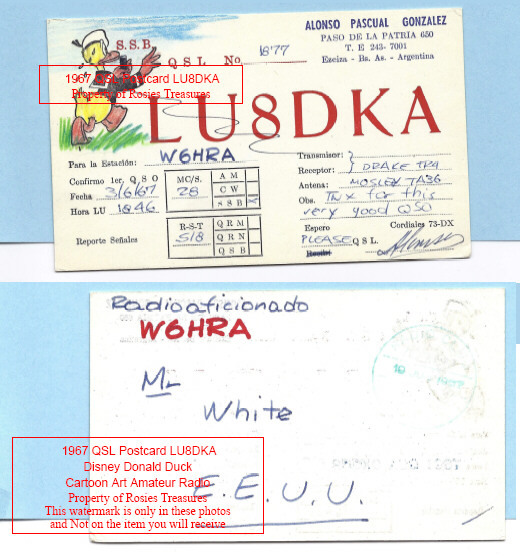 ALONSO PASCUAL GONZALEZ
PASO DE LA PATRIA 650
T. E 243-7001
Ezeiza - Bs. As. - Argentina
S.S.B.
QSL No. 1877
1967 QSL Postcard LU8DKA
Property of Rosies Treasures
LU8DKA
Para la Estación: W6HRA
Confirmo 1er. QSO
Fecha 3/6/67
Hora LU 1846
Reporte Señales
MC/S.
28
R-S-T
5/8
AM
CW
SSB X
QRM
QRN
QSB
Transmisor: }
Receptor: } DRAKE TR4
Antena: MOSLEY TA36
Obs. TNX for this
very good QSO
Espero Cordiales 73-DX
PLEASE QSL.
Radioaficionado
W6HRA
Mr
White
E.E.U.U.
1967 QSL Postcard LU8DKA
Disney Donald Duck
Cartoon Art Amateur Radio
Property of Rosies Treasures
This watermark is only in these photos
and Not on the item you will receive